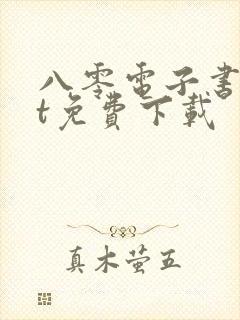 八零電子書
t免費下載
真木萤五